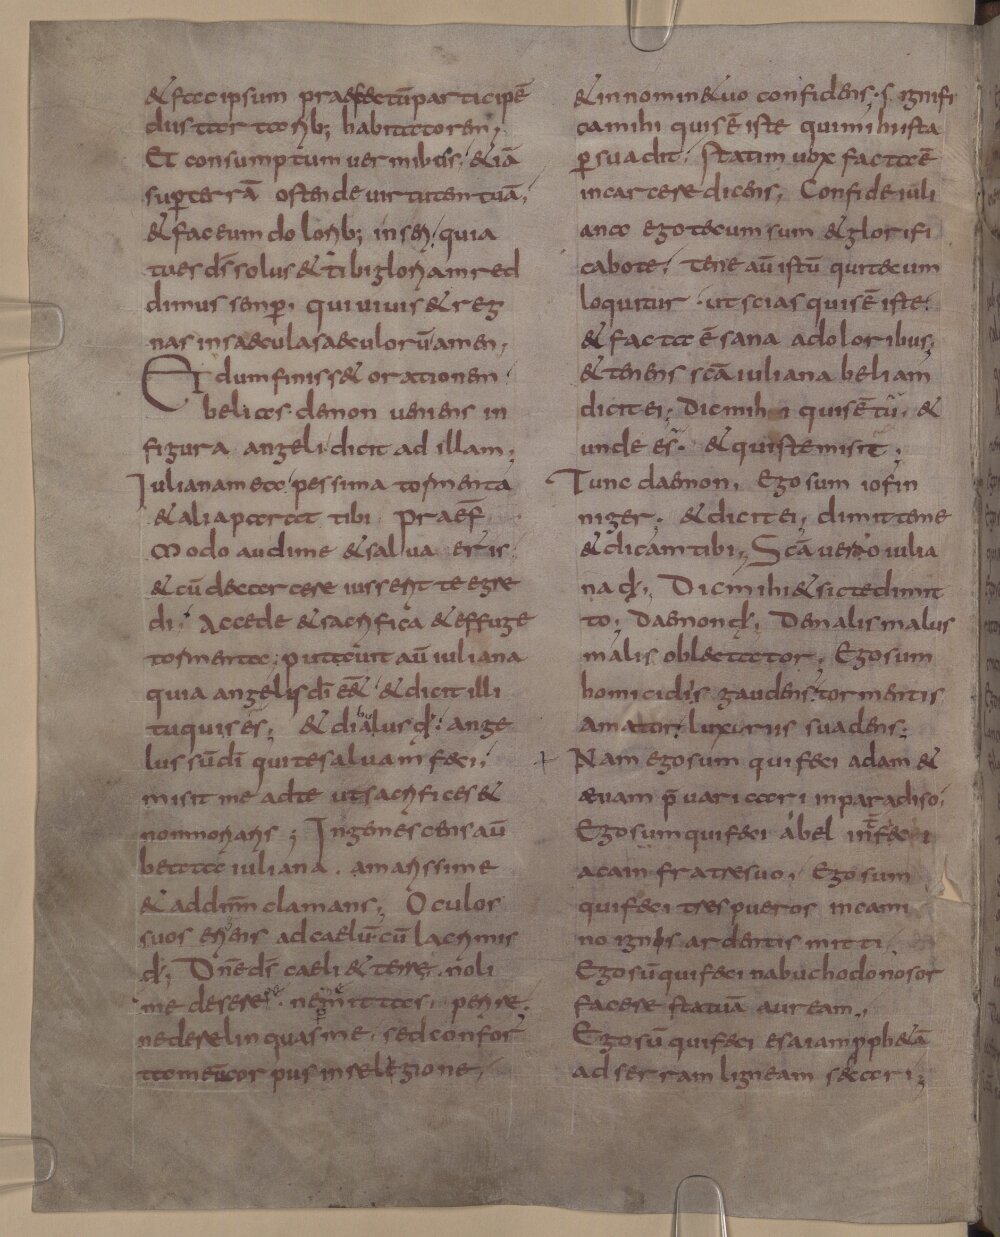 & fac ipsum praefectū participē
dus tartarorib; habitatorem,
Et consumptum uermibus. & iā
sup terrā ostende uirtutem tuā,
& fac eum dolorib; inseri, quia
tu es ds̄ solus & tibi gloriam red
dimus semp. qui uiuis & reg
nas in saecula saeculorū amen,
Et dum finiss& orationem
belias demon ueniens in
figura angeli dicit ad illam,
Iuliana mea pessima tormenta
& alia parat tibi praef.
Modo audi me & salua eris
& cū de carcere iusserit te egre
di. Accede & sacrifica & effuge
tormenta; putauit aū iuliana
quia angelus dī ēē & dicit illi
tu quis es; & diabalus dx̄. ange
lus sū dī qui te saluam feci,
misit me ad te ut sacrifices &
non moriaris; Ingemescens aū
beata iuliana. amarissime
& ad dn̄m clamans, Oculos
suos erigens ad caelū cū lacrimis
dx̄, Dn̄e ds̄ caeli & terre. noli
me deserere. ne mittas, perire,
ne derelinquas me, sed confor
ta meū cor pus in se legione,
& in nomin& uo confidens. signifi
ca mihi quis ē iste qui mihi ista
p suadit. Statim uox facta ē
in carcere dicens, Confide iuli
ana ego tecum sum & glorifi
cabo te, tene aū istū qui tecum
loquitur. ut scias quis ē iste.
& facta ē sana a doloribus,
& tenens scā iuliana beliam
dicit ei; Dic mihi quis ē tū. &
unde es. & quis te misit;
Tunc daemon, Ego sum iofin
niger. & dicit ei, dimitte me
& dicam tibi, Scā uero iulia
na dx̄, Dic mihi & sic te dimit
to; Daemon dx̄, De malis malus
malis oblectator, Ego sum
homicidis gaudens, tormentis
amator, luxuriis suadens;
Nam ego sum qui feci adam &
aeuam p̄uaricari in paradiso.
Ego sum qui feci abel interfeci
a cain fratre suo, Ego sum
qui feci tres pueros in cami
no ignis ardentis mitti
Ego sū qui feci nabuchodonosor
facere statuā auream,
Ego sū qui feci esaiam pph&ā
ad serram ligneam secari;